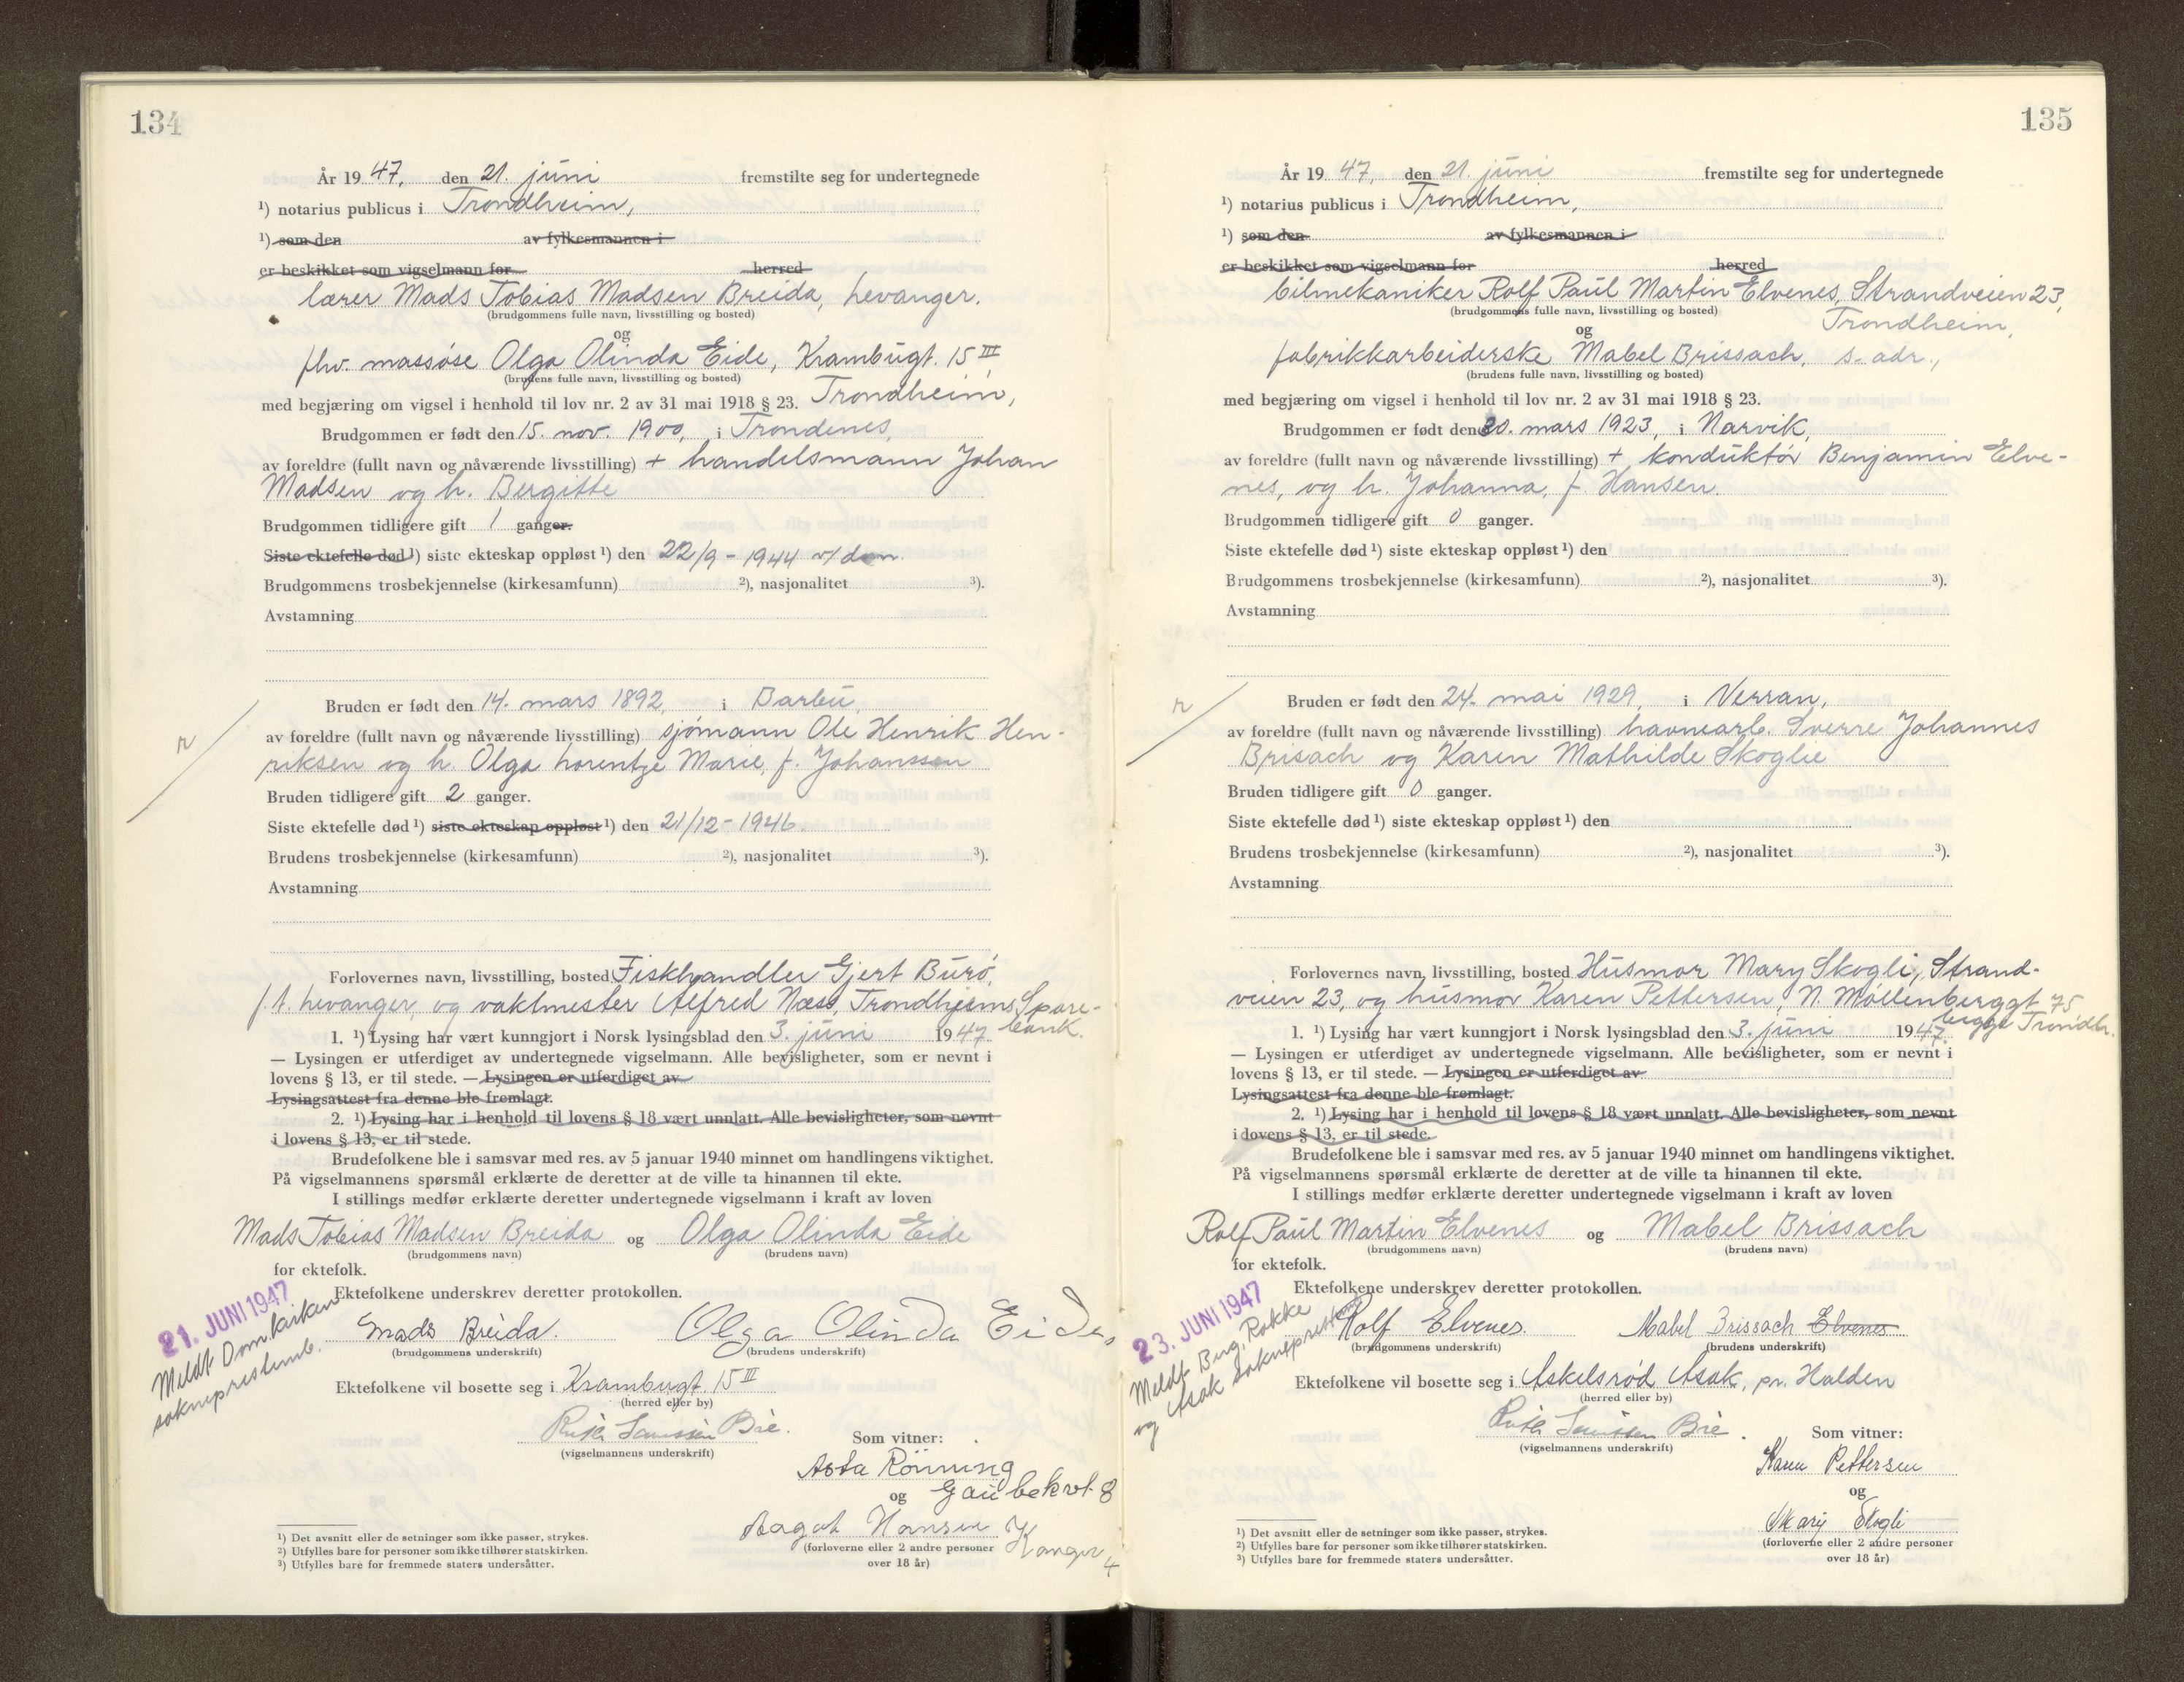 134
År 19 47, den 21. juni fremstilte seg for undertegnede
¹) notarius publicus i Trondheim,
¹) som den av fylkesmannen i
er beskikket som vigselmann for herred
lærer Mads Tobias Madsen Breida, Levanger.
(brudgommens fulle navn, livsstilling og bosted)
og
fhv. massøse Olga Olinda Eide, Krambugt. 15 III,
(brudens fulle navn, livsstilling og bosted)
med begjæring om vigsel i henhold til lov nr. 2 av 31 mai 1918 § 23. Trondheim,
Brudgommen er født den 15. nov. 1900, i Trondenes,
av foreldre (fullt navn og nåværende livsstilling) + handelsmann Johan
Madsen og h. Bergitte
Brudgommen tidligere gift 1 ganger.
Siste ektefelle død ¹) siste ekteskap oppløst ¹) den 22/9 - 1944 v/ dom.
Brudgommens trosbekjennelse (kirkesamfunn) ²), nasjonalitet ³).
Avstamning
Bruden er født den 14. mars 1892, i Barbu,
av foreldre (fullt navn og nåværende livsstilling) sjømann Ole Henrik Hen-
riksen og h. Olga Lorentze Marie, f. Johanssen
r
Bruden tidligere gift 2 ganger.
Siste ektefelle død ¹) siste ekteskap oppløst ¹) den 21/12 - 1946.
Brudens trosbekjennelse (kirkesamfunn) ²), nasjonalitet ³).
Avstamning
Forlovernes navn, livsstilling, bosted Fiskhandler Gjert Burø,
f.t. Levanger, og vaktmester Alfred Næss, Trondhjems Spare-
bank.
1. ¹) Lysing har vært kunngjort i Norsk lysingsblad den 3. juni 1947
— Lysingen er utferdiget av undertegnede vigselmann. Alle bevisligheter, som er nevnt i
lovens § 13, er til stede. — Lysingen er utferdiget av
Lysingsattest fra denne ble fremlagt.
2. ¹) Lysing har i henhold til lovens § 18 vært unnlatt. Alle bevisligheter, som nevnt
i lovens § 13, er til stede.
Brudefolkene ble i samsvar med res. av 5 januar 1940 minnet om handlingens viktighet.
På vigselmannens spørsmål erklærte de deretter at de ville ta hinannen til ekte.
I stillings medfør erklærte deretter undertegnede vigselmann i kraft av loven
Mads Tobias Madsen Breida og Olga Olinda Eide
(brudgommens navn) (brudens navn)
for ektefolk.
Ektefolkene underskrev deretter protokollen.
21. JUNI 1947
Meldt Domkirken
sokneprestemb.
Mads Breida. Olga Olinda Eide,
(brudgommens underskrift) (brudens underskrift)
Ektefolkene vil bosette seg i Krambugt. 15 III
(herred eller by)
(vigselmannens underskrift)
Som vitner:
Asta Rönning
og Gaubekvt. 8
Aagot Hansen
(forloverne eller 2 andre personer
over 18 år)
¹) Det avsnitt eller de setninger som ikke passer, strykes.
²) Utfylles bare for personer som ikke tilhører statskirken.
³) Utfylles bare for fremmede staters undersåtter.
135
År 19 47, den 21. juni fremstilte seg for undertegnede
¹) notarius publicus i Trondheim,
¹) som den av fylkesmannen i
er beskikket som vigselmann for herred
bilmekaniker Rolf Paul Martin Elvenes, Strandveien 23,
(brudgommens fulle navn, livsstilling og bosted)
Trondheim,
og
fabrikkarbeiderske Mabel Brissach, s. adr.,
(brudens fulle navn, livsstilling og bosted)
med begjæring om vigsel i henhold til lov nr. 2 av 31 mai 1918 § 23.
Brudgommen er født den 30. mars 1923, i Narvik,
av foreldre (fullt navn og nåværende livsstilling) + konduktør Benjamin Elve-
nes, og h. Johanna, f. Hansen.
Brudgommen tidligere gift 0 ganger.
Siste ektefelle død ¹) siste ekteskap oppløst ¹) den
Brudgommens trosbekjennelse (kirkesamfunn) ²), nasjonalitet ³).
Avstamning
Bruden er født den 24. mai 1929, i Verran,
r
av foreldre (fullt navn og nåværende livsstilling) havnearb. Sverre Johannes
Brisach og Karen Mathilde Skoglie
Bruden tidligere gift 0 ganger.
Siste ektefelle død ¹) siste ekteskap oppløst ¹) den
Brudens trosbekjennelse (kirkesamfunn) ²), nasjonalitet ³).
Avstamning
Forlovernes navn, livsstilling, bosted Husmor Mary Skogli, Strand-
veien 23, og husmor Karen Pettersen, N. Møllenberggt 75
begge Trondh.
1. ¹) Lysing har vært kunngjort i Norsk lysingsblad den 3. juni 1947.
— Lysingen er utferdiget av undertegnede vigselmann. Alle bevisligheter, som er nevnt i
lovens § 13, er til stede. — Lysingen er utferdiget av
Lysingsattest fra denne ble fremlagt.
2. ¹) Lysing har i henhold til lovens § 18 vært unnlatt. Alle bevisligheter, som nevnt
i lovens § 13, er til stede.
Brudefolkene ble i samsvar med res. av 5 januar 1940 minnet om handlingens viktighet.
På vigselmannens spørsmål erklærte de deretter at de ville ta hinannen til ekte.
I stillings medfør erklærte deretter undertegnede vigselmann i kraft av loven
Rolf Paul Martin Elvenes og Mabel Brissach
(brudgommens navn) (brudens navn)
for ektefolk.
Ektefolkene underskrev deretter protokollen.
23. JUNI 1947
Meldt Berg, Rokke
og Asak sokneprestemb
Rolf Elvenes. Mabel Brissach Elvenes
(brudgommens underskrift) (brudens underskrift)
Ektefolkene vil bosette seg i Askelsrød Asak, pr. Halden
(herred eller by)
(vigselmannens underskrift)
Som vitner:
Karen Pettersen
og
Mary Skogli
(forloverne eller 2 andre personer
over 18 år)
¹) Det avsnitt eller de setninger som ikke passer, strykes.
²) Utfylles bare for personer som ikke tilhører statskirken.
³) Utfylles bare for fremmede staters undersåtter.